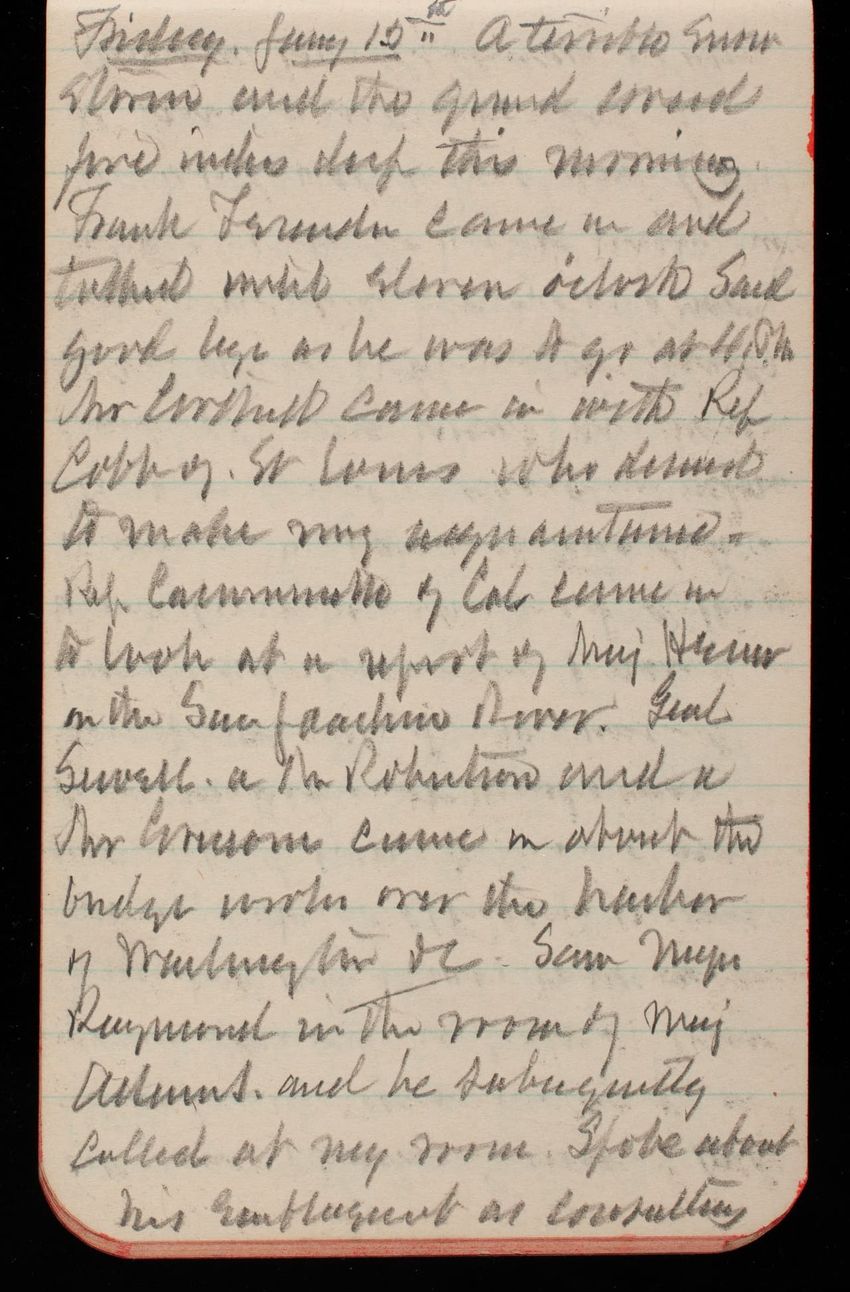 Friday. Jany 15th A terrible Snow
Storm and the ground covered
five inches deep this morning.
Frank came in and
talked until Eleven o'clock Said
good bye as he was to go at 4 P.M.
Mr came in with Rep
Cobb of St Louis who desired
to make my acquaintance.
Rep. of Cal came in
to look at a report of Maj Heuer
on the San Joachin River. Genl
Sewell. a Mr Robertson and a
Mr came in about the
bridge over the harbor
of Washington DC. Saw Majr
Raymond in the room of Maj
Adams. and he subsequently
called at my room. Spoke about
his as consulting